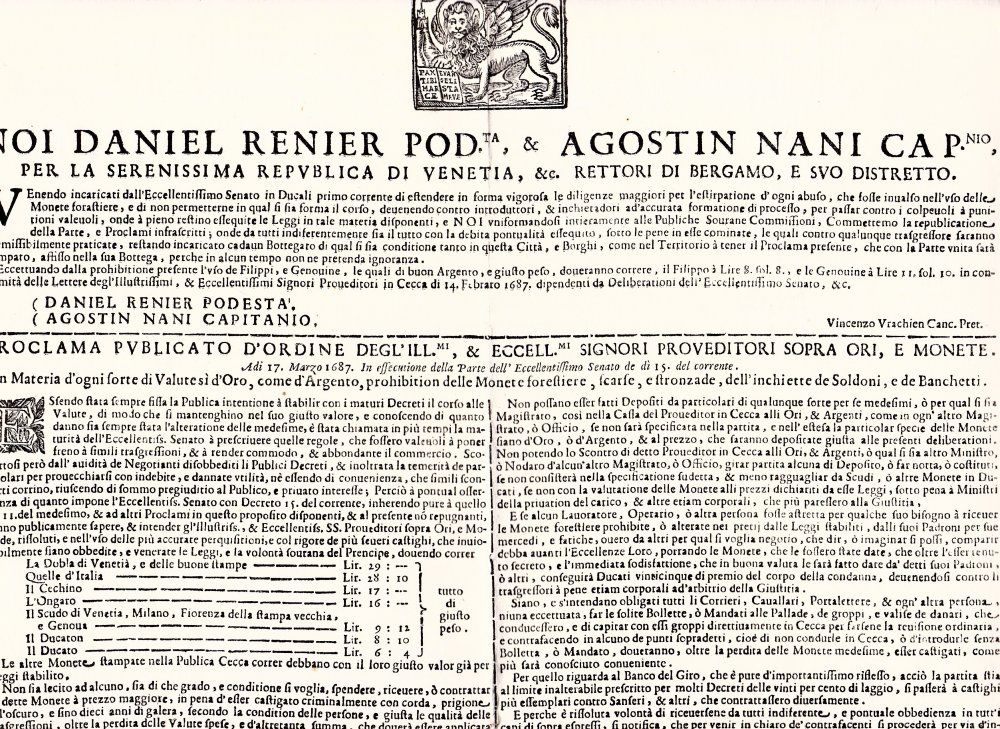 PAX EVAN
TIBI GELI
MAR STA
CE MEVS
NOI DANIEL RENIER POD.TA, & AGOSTIN NANI CAP.NIO,
PER LA SERENISSIMA REPVBLICA DI VENETIA, &c. RETTORI DI BERGAMO, E SVO DISTRETTO.
VEnendo incaricati dall'Eccellentiſſimo Senato in Ducali primo corrente di eſtendere in forma vigoroſa le diligenze maggiori per l'eſtirpatione d'ogni abuſo, che foſſe inualſo nell'vſo delle
Monete foraſtiere, e di non permetterne in qual ſi ſia forma il corſo, deuenendo contro introduttori, & inchietadori ad'accurata formatione di proceſſo, per paſſar contro i colpeuoli à puni-
tioni valeuoli, onde à pieno reſtino eſſequite le Leggi in tale materia diſponenti, e NOI vniformandoſi intieramente alle Publiche Sourane Commiſſioni, Commettemo la republicatione
della Parte, e Proclami infraſcritti; onde da tutti indiferentemente ſia il tutto con la debita pontualità eſſequito, ſotto le pene in eſſe cominate, le quali contro qualunque traſgreſſore ſaranno
emiſſibilmente praticate, reſtando incaricato cadaun Bottegaro di qual ſi ſia conditione tanto in queſta Città, e Borghi, come nel Territorio à tener il Proclama preſente, che con la Parte vnita ſarà
mparo, affiſſo nella ſua Bottega, perche in alcun tempo non ne pretenda ignoranza.
Eccettuando dalla prohibitione preſente l'vſo de Filippi, e Genouine, le quali di buon Argento, e giuſto peſo, doueranno correre, il Filippo à Lire 8. ſol. 8., e le Genouine à Lire 11. ſol. 10. in con-
mità delle Lettere degl'Illuſtriſſimi, & Eccellentiſſimi Signori Proueditori in Cecca di 14. Febraro 1687. dipendenti da Deliberationi dell'Eccellentiſſimo Senato, &c.
( DANIEL RENIER PODESTA'.
( AGOSTIN NANI CAPITANIO.
Vincenzo Vrachien Canc. Pret.
PROCLAMA PVBLICATO D'ORDINE DEGL'ILL.MI, & ECCELL.MI SIGNORI PROVEDITORI SOPRA ORI, E MONETE.
Adi 17. Marzo 1687. In eſſecutione della Parte dell'Eccellentiſſimo Senato de di 15. del corrente.
In Materia d'ogni ſorte di Valute sì d'Oro, come d'Argento, prohibition delle Monete foreſtiere, ſcarſe, e ſtronzade, dell'inchiette de Soldoni, e de Banchetti.
ESſendo ſtata ſempre fiſſa la Publica intentione à ſtabilir con i maturi Decreti il corſo alle
Valute, di modo che ſi mantenghino nel ſuo giuſto valore, e conoſcendo di quanto
danno ſia ſempre ſtata l'alteratione delle medeſime, è ſtata chiamata in più tempi la ma-
turità dell'Eccellentiſs. Senato à preſcriuere quelle regole, che foſſero valeuoli à poner
freno à ſimili traſgreſſioni, & à render commodo, & abbondante il commercio. Sco-
rtoſi però dall'auidità de Negotianti diſobbediti li Publici Decreti, & inoltrata la temerità de par-
olari per prouecchiarſi con indebite, e dannate vtilità, nè eſſendo di conuenienza, che ſimili ſcon-
rti corrino, riuſcendo di ſommo pregiuditio al Publico, e priuato intereſſe; Perciò à pontual oſſer-
anza di quanto impone l'Eccellentiſs. Senato con Decreto 15. del corrente, inherendo pure à quello
11. del medeſimo, & ad altri Proclami in queſto propoſito diſponenti, & al preſente nō repugnanti,
nno publicamente ſapere, & intender gl'Illuſtriſs., & Eccellentiſs. SS. Proueditori ſopra Ori, e Mo-
de, riſſoluti, e nell'vſo delle più accurate perquiſitioni, e col rigore de più ſeueri caſtighi, che inuio-
bilmente ſiano obbedite, e venerate le Leggi, e la volontà ſourana del Prencipe, douendo correr
La Dobla di Venetia, e delle buone ſtampe Lir. 29 : —
Quelle d'Italia Lir. 28 : 10
Il Cechino Lir. 17 : — tutto
L'Ongaro Lir. 16 : — di
Il Scudo di Venetia, Milano, Fiorenza della ſtampa vecchia, giuſto
e Genoua Lir. 9 : 12 peſo.
Il Ducaton Lir. 8 : 10
Il Ducato Lir. 6 : 4
Le altre Monete ſtampate nella Publica Cecca correr debbano con il loro giuſto valor già per
eggi ſtabilito.
Non ſia lecito ad alcuno, ſia di che grado, e conditione ſi voglia, ſpendere, riceuere, ò contrattar
dette Monete à prezzo maggiore, in pena d'eſſer caſtigato criminalmente con corda, prigione
l'oſcuro, e ſino dieci anni di galera, ſecondo la condition delle perſone, e giuſta le qualità delle
aſgreſſioni, oltre la perdita delle Valute ſpeſe, e d'altretanta ſumma, che douerà eſſere applicata
Non poſſano eſſer fatti Depoſiti da particolari di qualunque ſorte per ſe medeſimi, ò per qual ſi ſia
Magiſtrato, così nella Caſſa del Proueditor in Cecca alli Ori, & Argenti, come in ogn'altro Magi-
ſtrato, ò Officio, ſe non ſarà ſpecificata nella partita, e nell'eſteſa la particolar ſpecie delle Monete
ſiano d'Oro, ò d'Argento, & al prezzo, che ſaranno depoſitate giuſta alle preſenti deliberationi.
Non potendo lo Scontro di detto Proueditor in Cecca alli Ori, & Argenti, ò qual ſi ſia altro Miniſtro,
ò Nodaro d'alcun'altro Magiſtrato, ò Officio, girar partita alcuna di Depoſito, ò far notta, ò coſtituti,
ſe non conſiſterà nella ſpecificatione ſudetta, & meno ragguagliar da Scudi, ò altre Monete in Du-
cati, ſe non con la valutatione delle Monete alli prezzi dichiariti da eſſe Leggi, ſotto pena à Miniſtri
della priuation del carico, & altre etiam corporali, che più pareſſero alla Giuſtitia.
E ſe alcun Lauoratore, Operario, ò altra perſona foſſe aſtretta per qualche ſuo biſogno à riceuer
le Monete foreſtiere prohibite, ò alterate nei pretij dalle Leggi ſtabiliti, dalli ſuoi Padroni per ſue
mercedi, e fatiche, ouero da altri per qual ſi voglia negotio, che dir, ò imaginar ſi poſſi, comparir
debba auanti l'Eccellenze Loro, portando le Monete, che le foſſero ſtate date, che oltre l'eſſer tenu-
to ſecreto, e l'immediata ſodisfattione, che in buona valuta le ſarà fatto dare da' detti ſuoi Padroni,
ò altri, conſeguirà Ducati vinticinque di premio del corpo della condanna, deuenendoſi contro li
traſgreſſori à pene etiam corporali ad'arbitrio della Giuſtitia.
Siano, e s'intendano obligati tutti li Corrieri, Cauallari, Portalettere, & ogn'altra perſona,
niuna eccettuata, far le ſolite Bollette, ò Mandati alle Pallade, de groppi, e valiſe de danari, che
conduceſſero, e di capitar con eſſi groppi direttiuamente in Cecca per farſene la reuiſione ordinaria,
e contrafacendo in alcuno de punti ſopradetti, cioè di non condurle in Cecca, ò d'introdurle ſenza
Bolletta, ò Mandato, doueranno, oltre la perdita delle Monete medeſime, eſſer caſtigati, come
più ſarà conoſciuto conueniente.
Per quello riguarda al Banco del Giro, che è pure d'importantiſſimo rifleſſo, acciò la partita ſtia
al limite inalterabile preſcritto per molti Decreti delle vinti per cento di laggio, ſi paſſerà à caſtighi
più eſſemplari contro Sanſeri, & altri, che contrattaſſero diuerſamente.
E perche è riſſoluta volontà di riceuerſene da tutti indiferente, e pontuale obbedienza in tutt'i
ani di ſopra eſpreſſi, ſi notifica, che per venir in chiaro de' contrafacenti ſi procederà per via d'in-